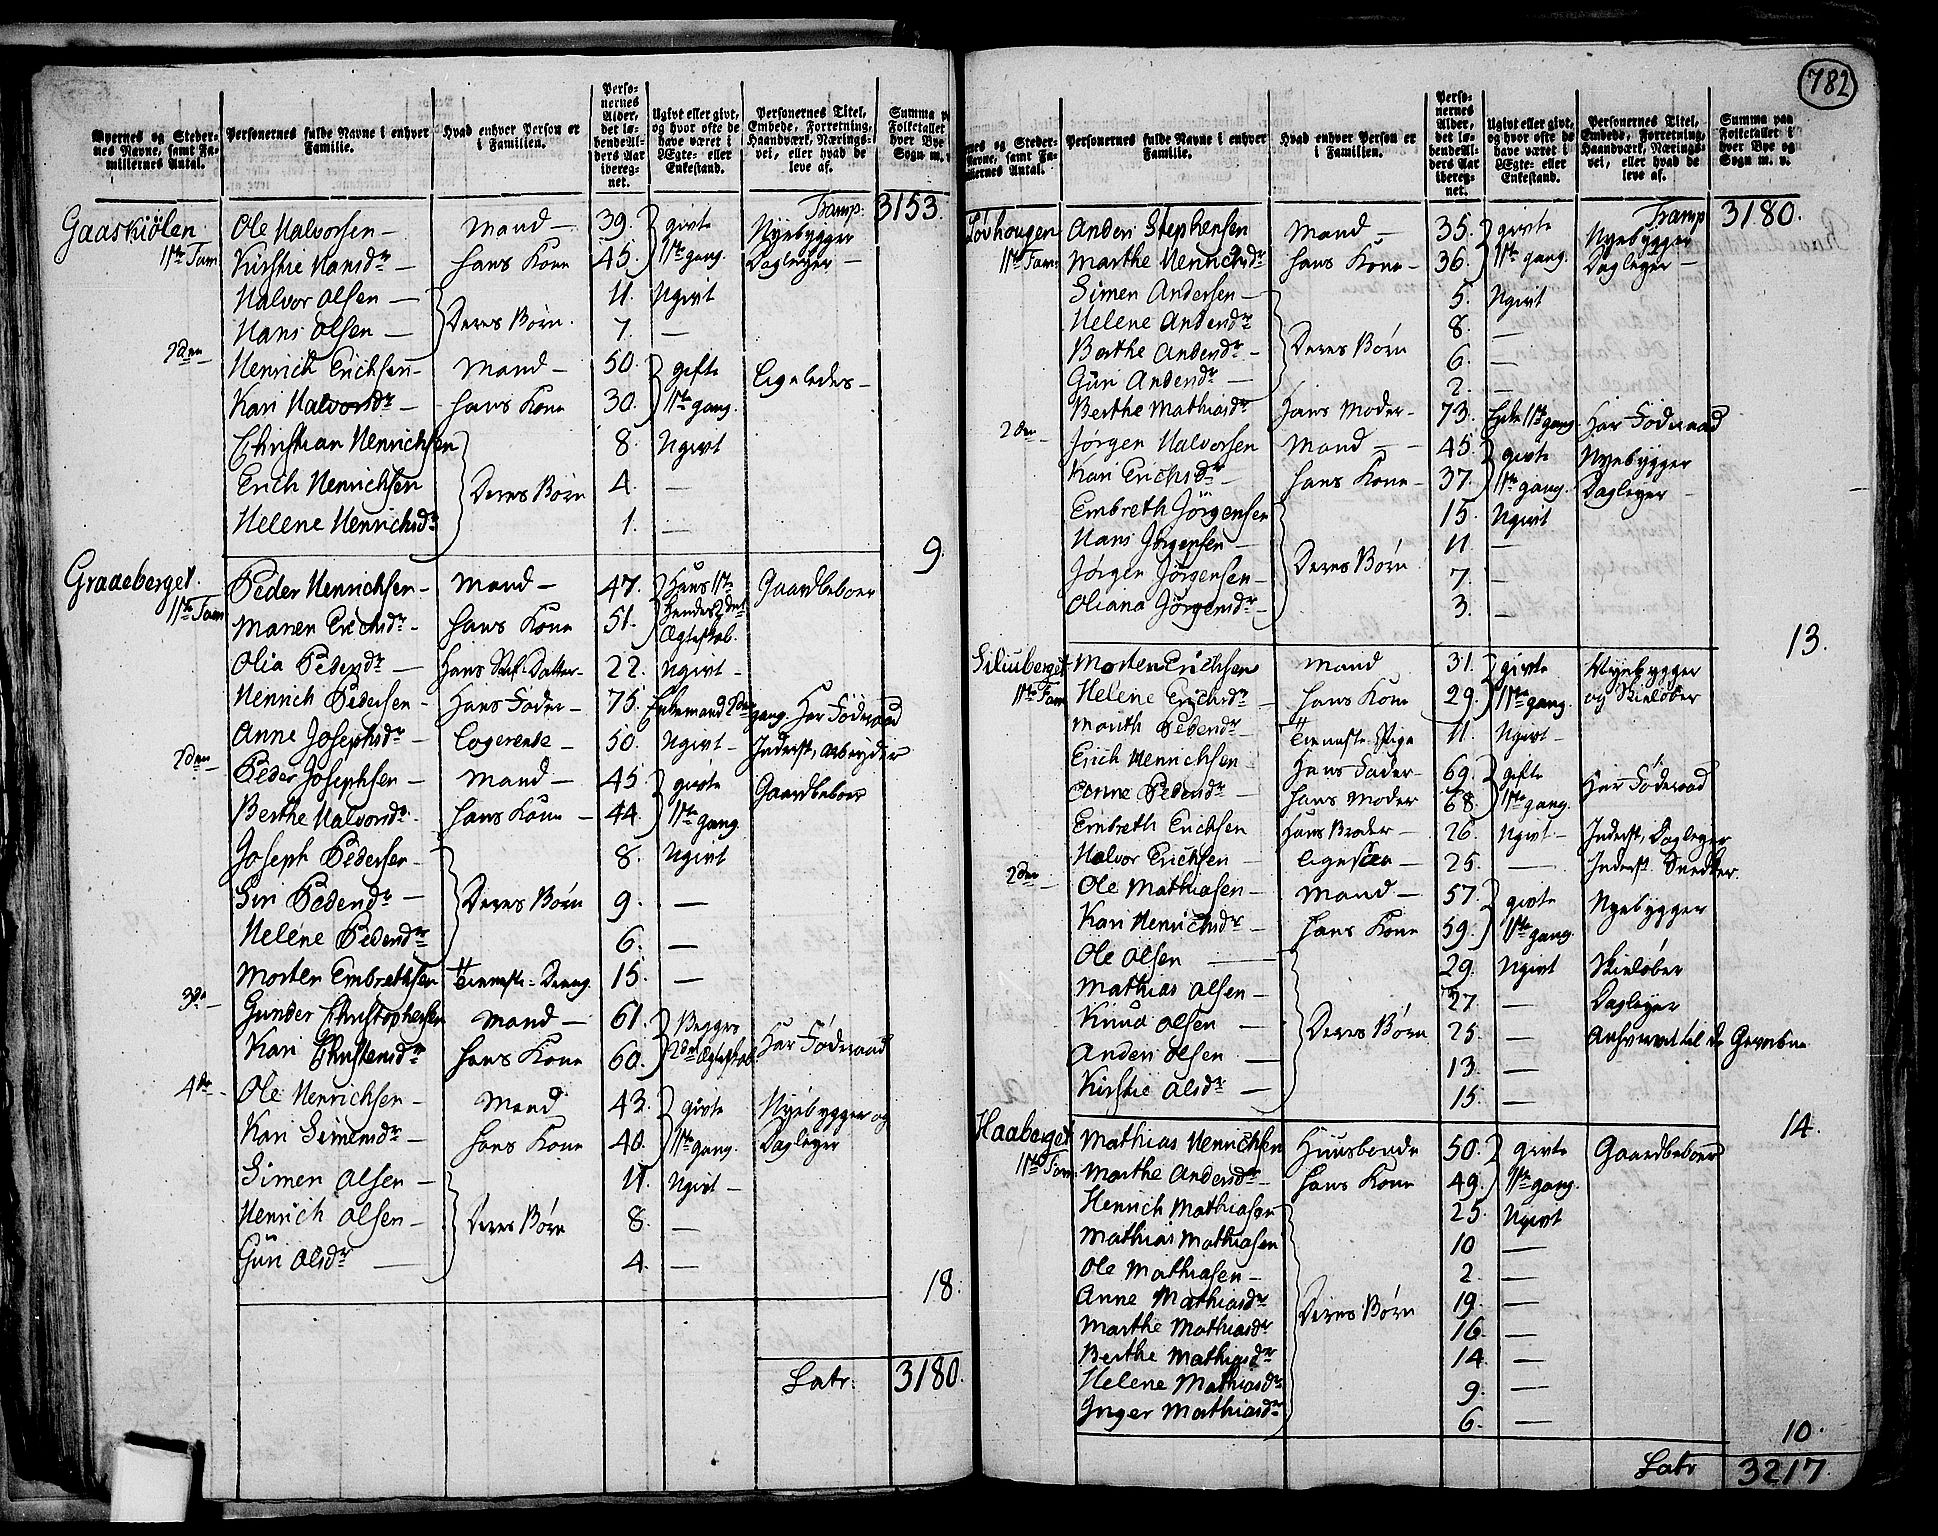 Byernes og Steder-
nes Navne, samt Fa-
miliernes Antal.
Personernes fulde Navne i enhver
Familie.
Hvad enhver Person er
i Familien.
Perso-
nernes
Alder,
det lø-
bende Al-
ders Aar
ibereg-
net.
Ugivt eller givt,
og hvor ofte de
have været i
Ægte- eller
Enkestand.
Personernes Titel,
Embede, Forretning,
Haandværk, Nærings-
vei, eller hvad de
leve af.
Summa pa
Folketallet
hver Bye o
Sogn m. v
Transp. 3153.
Gaaskiölen Ole Halvorsen — Mand — 39. givte Nyebygger
1ste Fam Kirstie Hansdr — Hans Kone 45. 1ste gang. Dagleyer —
Halvor Olsen — Deres Børn. 11. Ugivt
Hans Olsen — 7. —
2den Henrich Erichsen — Mand — 50. gifte Ligeledes —
Kari Halvorsdr — Hans Kone 30. 1ste gang.
Christian Henrichsen 8. Ugivt
Erich Henrichsen Deres Børn 4. —
Helene Henrichsdr 1. —
9.
Graaeberget. Peder Henrichsen — Mand — 47. Hans 1ste Gaardbeboer
1ste Fam Maren Erichsdr — Hans Kone 51. Hendes 2det
Ægteskab.
Olia Pedersdr — Hans Datter — 22. Ugivt —
Henrich Pedersen — Hans Fader — 75. Enkemand 2den gang. Har Föderaad
Anne Josephsdr — Logerende — 50. Ugivt — Inderst, Arbeyder
2den Peder Josephsen — Mand — 45 givte Gaardbeboer
Berthe Halvorsdr. Hans Kone — 44. 1ste gang.
Joseph Pedersen — 8. Ugivt
Siri Pedersdr — Deres Børn 9. —
Helene Pedersdr 6. —
Morten Embrethsen Tieneste-Dreng 15. —
3de — Gunder Christophersen Mand — 61. Begges Har Föderaad
Kari Christensdr Hans Kone 60. 2det Ægteskab
4de — Ole Henrichsen — Mand 43. givte Nyebygger og
Kari Simensdr — Hans Kone 40. 1ste gang. Dagleyer
Simen Olsen — 11. Ugivt —
Henrich Olsen — Deres Børn 8. —
Guri Olsdr — 4. —
18.
Latr. 3180.
782
nes og Steder-
Navne, samt Fa-
iliernes Antal.
Personernes fulde Navne i enhver
Familie.
Hvad enhver Person er
i Familien.
Perso-
nernes
Alder,
det lø-
bende Al-
ders Aar
ibereg-
net.
Ugivt eller givt,
og hvor ofte de
have været i
Ægte- eller
Enkestand.
Personernes Titel,
Embede, Forretning,
Haandværk, Nærings-
vei, eller hvad de
leve af.
Summa paa
Folketallet i
hver Bye og
Sogn m. v.
Transp 3180.
Lövhougen Anders Stephensen Mand — 35. givte Nyebygger
1ste Fam Marthe Henrichsdr Hans Kone — 36. 1ste gang. Dagleyer —
Simen Andersen — 5. Ugivt
Helene Andersdr 8. —
Berthe Andersdr — Deres Børn 6. —
Guri Andersdr — 2. —
Berthe Mathiasdr Hans Moder — 73. Enke 1ste gang. Har Föderaad
2den Jörgen Halvorsen Mand — 45. givte Nyebygger
Kari Erichsdr — Hans Kone — 37. 1ste gang. Dagleyer —
Embreth Jörgensen 15. Ugivt
Hans Jörgensen — 11 —
Jörgen Jörgensen — Deres Børn 7. —
Oliana Jörgensdr — 3. —
13.
Siliuberget Morten Erichsen Mand 31. givte Nyebygger
1ste Fam Helene Erichsdr — Hans Kone 29. 1ste gang. og Skieløber
Marith Pedersdr — Tieneste-Pige 11. Ugivt —
Erich Henrichsen — Hans Fader — 69. gifte Har Föderaad
Pedersdr — Hans Moder 68. 1ste gang.
Embreth Erichsen Hans Broder — 26. Ugivt — Inderst, Dagleyer
Halvor Erichsen — — 25. — Inderst. Snedker
2den Ole Mathiasen — Mand — 57. givte Nyebygger
Kari Henrichsdr — Hans Kone 59. 1ste gang.
Ole Olsen — 29. Ugivt Skieløber
Mathias Olsen — 27 — Dagleyer
Knud Olsen — Deres Børn 25. — til de
Anders Olsen — 13. —
Kirstie Olsdr — 15. —
14.
Haaberget Mathias Henrichsen Huusbonde 50. givte Gaardbeboer
1ste Fam. Marthe Andersdr — Hans Kone 49. 1ste gang.
Henrich Mathiasen 25. Ugivt
Mathias Mathiasen 10 —
Ole Mathiasen — 2. —
Anne Mathiasdr Deres Børn 19. —
Marthe Mathiasdr 16. —
Berthe Mathiasdr 14. —
Helene Mathiasdr 9. —
Inger Mathiasdr 6. —
10.
Latr 3217.